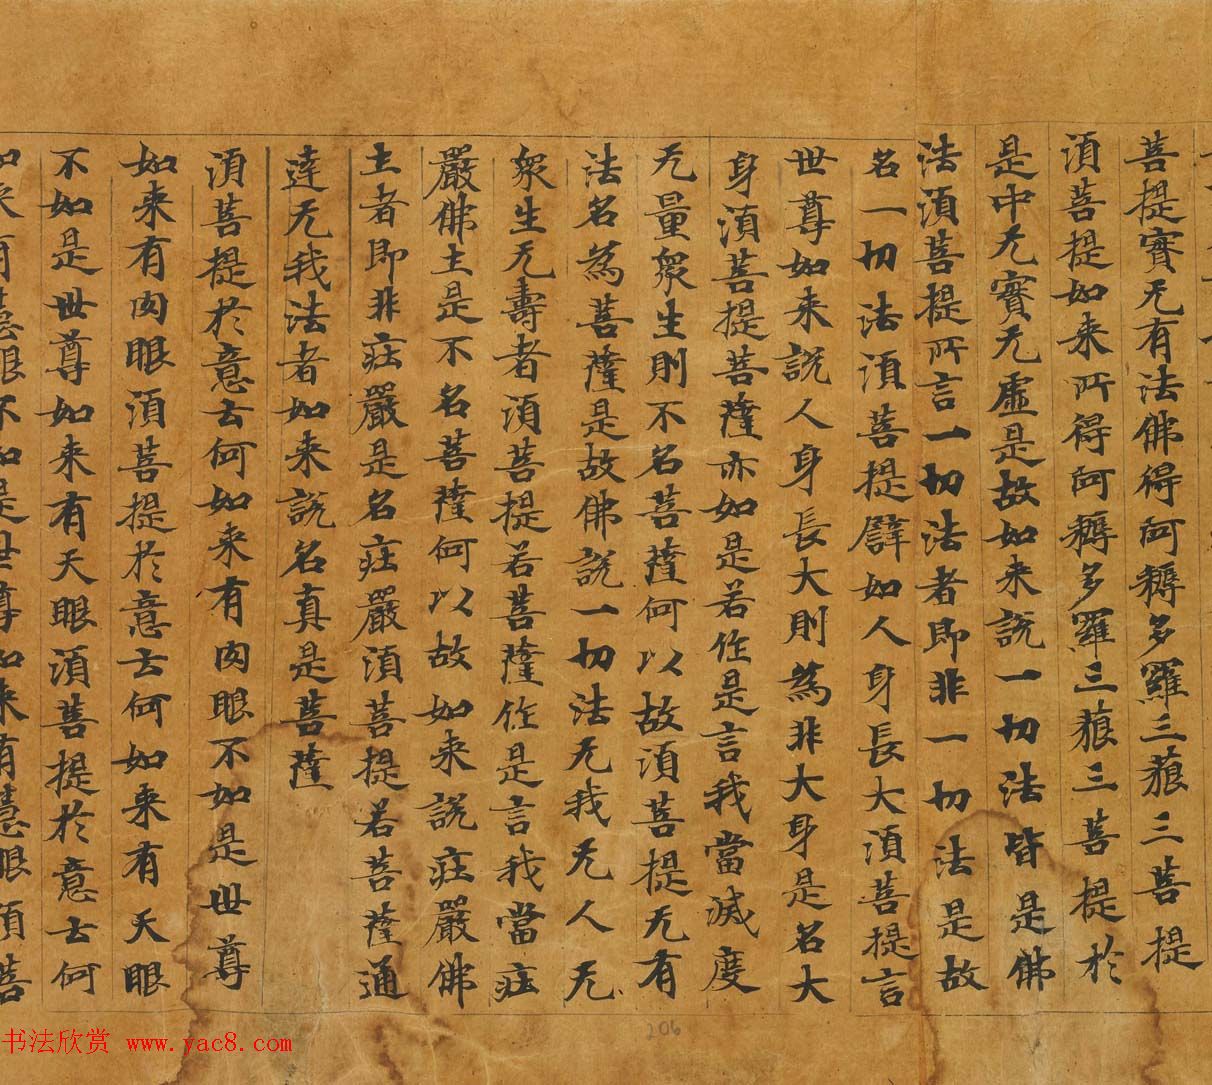 菩提實无有法佛得阿耨多羅三藐三菩提
須菩提如来所得阿耨多羅三藐三菩提於
是中无實无虛是故如来說一切法皆是佛
法須菩提所言一切法者即非一切法是故
名一切法須菩提譬如人身長大須菩提言
世尊如来說人身長大則為非大身是名大
身須菩提菩薩亦如是若作是言我當滅度
无量眾生則不名菩薩何以故須菩提无有
法名為菩薩是故佛說一切法无我无人无
眾生无壽者須菩提若菩薩作是言我當莊
嚴佛土是不名菩薩何以故如来說莊嚴佛
土者即非莊嚴是名莊嚴須菩提若菩薩通
達无我法者如来說名真是菩薩
須菩提於意云何如来有肉眼不如是世尊
如来有肉眼須菩提於意云何如来有天眼
不如是世尊如来有天眼須菩提於意云何
如来有慧眼不如是世尊如来有慧眼須菩
206
书法欣赏 www.yac8.com